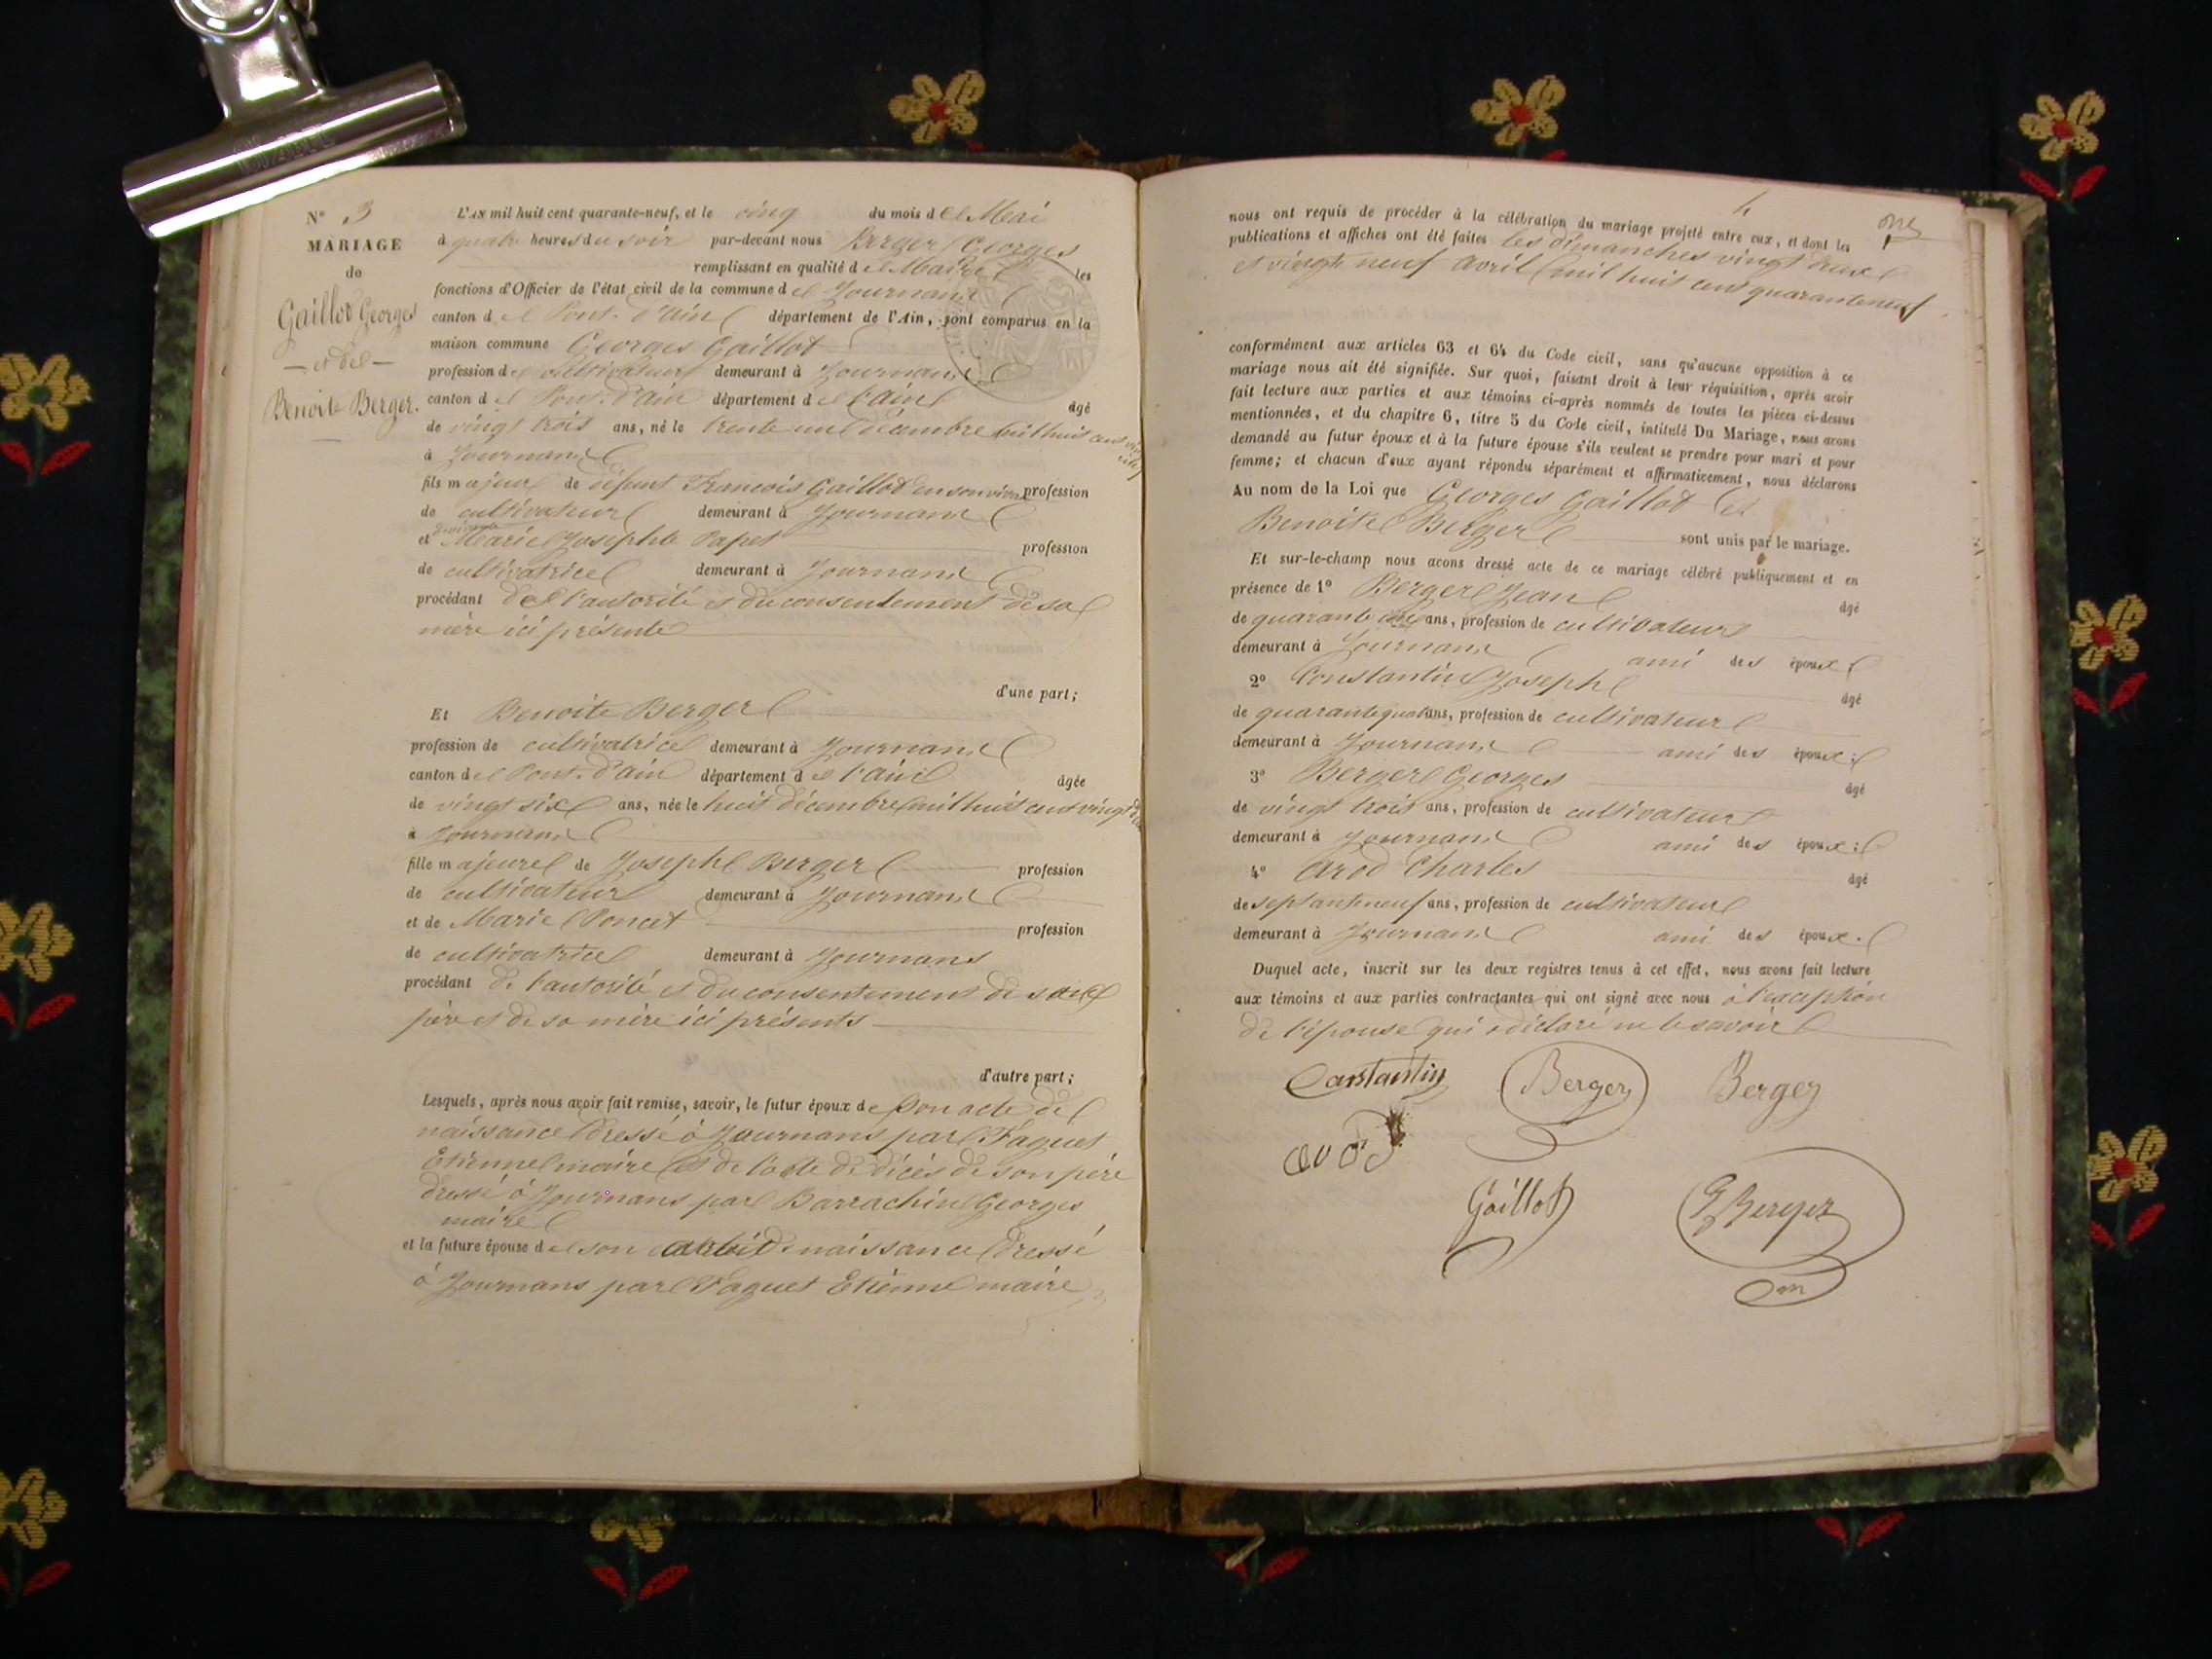 N° 3
MARIAGE
de
Gaillot Georges
— et de —
Benoite Berger.
L'AN mil huit cent quarante-neuf, et le cinq du mois de Mai
à quatre heures du soir par-devant nous Berger Georges
remplissant en qualité de Maire les
fonctions d'Officier de l'état civil de la commune de Journans
canton de Pont-d'ain département de l'Ain, sont comparus en la
maison commune Georges Gaillot
profession de cultivateur demeurant à Journans
canton de Pont-d'ain département de l'ain âgé
de vingt trois ans, né le trente un décembre mil huit cent
à Journans
fils majeur de défunt Francois Gaillot en son vivant profession
de cultivateur demeurant à Journans
et Marie Josephte Papet profession
de cultivatrice demeurant à Journans
procédant de l'autorité et du consentement de sa
mère ici présente
d'une part;
Et Benoite Berger
profession de cultivatrice demeurant à Journans
canton de Pont-d'ain département de l'ain âgée
de vingt six ans, née le huit décembre mil huit cent vingt
à Journans
fille majeure de Joseph Berger profession
de cultivateur demeurant à Journans
et de Marie Poncet profession
de cultivatrice demeurant à Journans
procédant de l'autorité et du consentement de son
père et de sa mère ici présents
d'autre part;
Lesquels, après nous avoir fait remise, savoir, le futur époux de son acte de
naissance dressé à Journans par Faguet
Etienne maire et de l'acte de décès de son père
dressé à Journans par Barrachin Georges
maire
et la future épouse de son naissance dressé
à Journans par Faguet Etienne maire
4
nous ont requis de procéder à la célébration du mariage projeté entre eux, et dont les
publications et affiches ont été faites les dimanches vingt deux
et vingt neuf avril mil huit cent quarante neuf
conformément aux articles 63 et 64 du Code civil, sans qu'aucune opposition à ce
mariage nous ait été signifiée. Sur quoi, faisant droit à leur réquisition, après avoir
fait lecture aux parties et aux témoins ci-après nommés de toutes les pièces ci-dessus
mentionnées, et du chapitre 6, titre 5 du Code civil, intitulé Du Mariage, nous avons
demandé au futur époux et à la future épouse s'ils veulent se prendre pour mari et pour
femme; et chacun d'eux ayant répondu séparément et affirmativement, nous déclarons
Au nom de la Loi que Georges Gaillot et
Benoite Berger sont unis par le mariage.
Et sur-le-champ nous avons dressé acte de ce mariage célébré publiquement et en
présence de 1° Berger Jean âgé
de quarante ans, profession de cultivateur
demeurant à Journans ami des époux;
2° Constantin Joseph âgé
de quarante quatre ans, profession de cultivateur
demeurant à Journans ami des époux;
3° Berger Georges âgé
de vingt trois ans, profession de cultivateur
demeurant à Journans ami des époux;
4° Arod Charles âgé
de septante neuf ans, profession de cultivateur
demeurant à Journans ami des époux.
Duquel acte, inscrit sur les deux registres tenus à cet effet, nous avons fait lecture
aux témoins et aux parties contractantes qui ont signé avec nous à l'exception
de l'épouse qui a déclaré ne le savoir
Constantin Berger Berger
arod
Gaillot G Berger